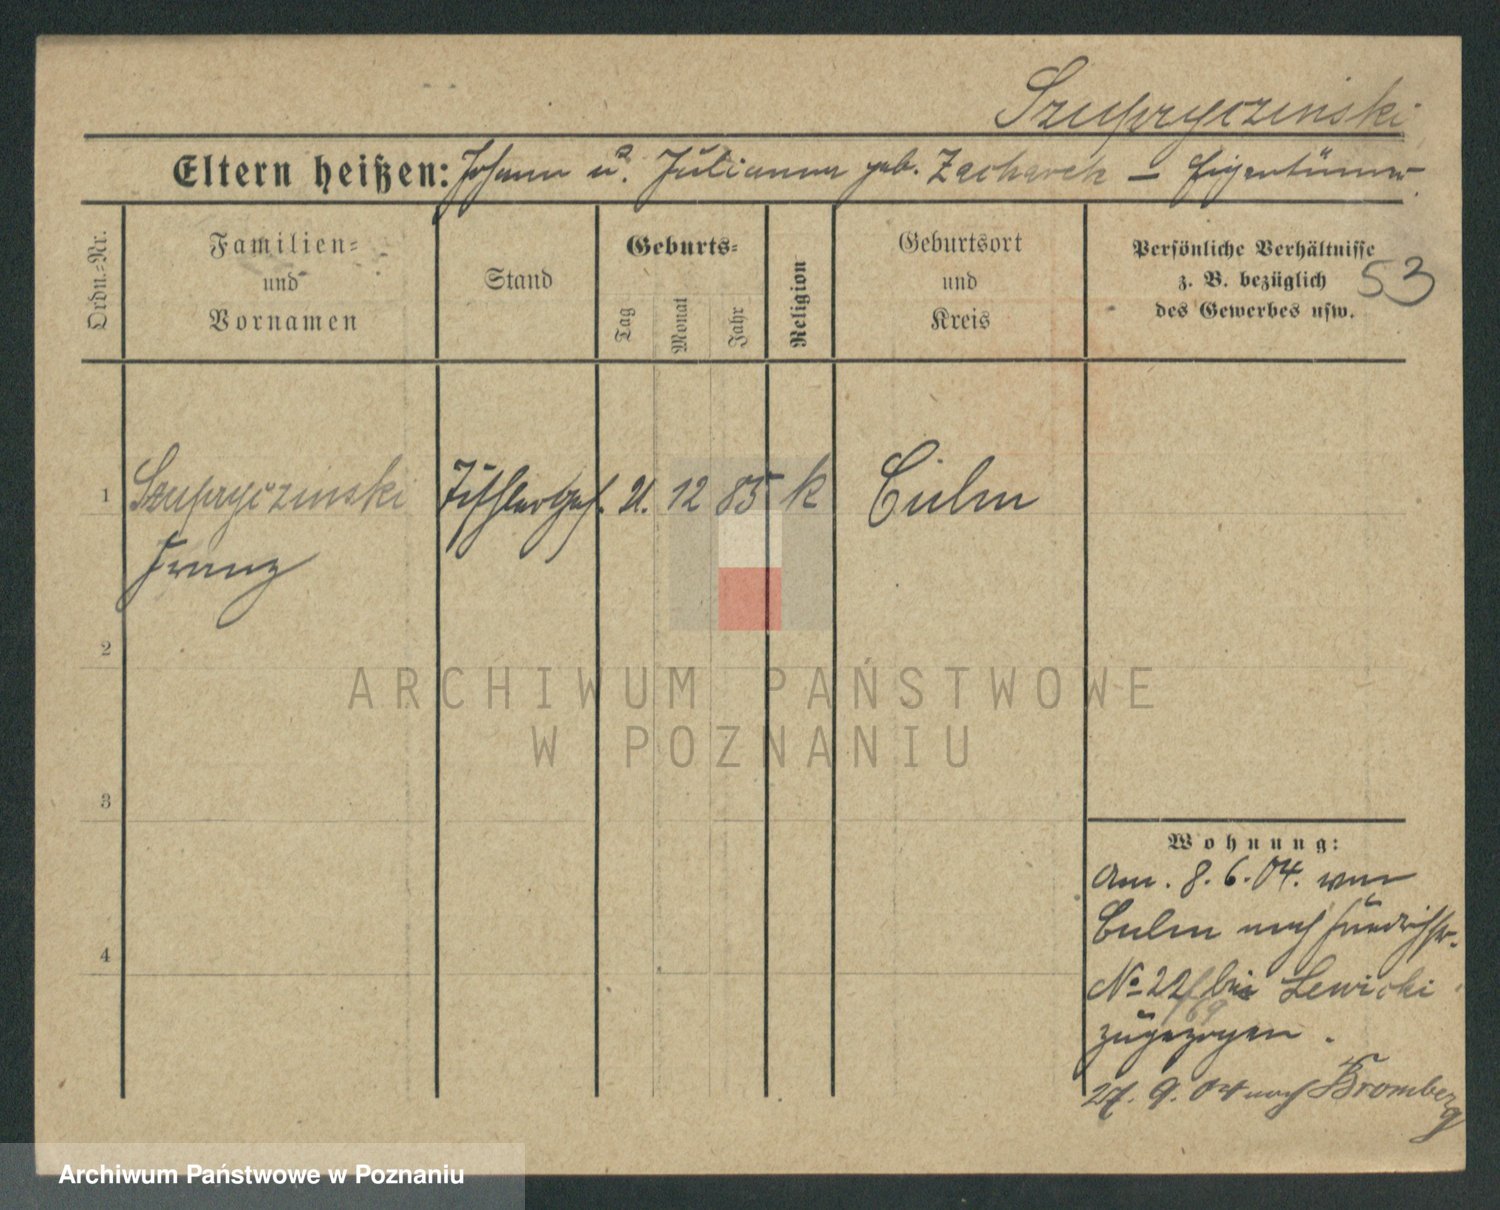 Szupryczinski
Eltern heißen: Johann u. Julianna geb. Zacharek – Eigentümer
Ordn.-Nr.
Familien-
und
Vornamen
Stand
Geburts-
Tag
Monat
Jahr
Religion
Geburtsort
und
Kreis
Persönliche Verhältnisse
z. B. bezüglich
des Gewerbes usw.
53
1 Szupryczinski Tischlerges. 21. 12 85 k Culm
Franz
2
ARCHIWUM PAŃSTWOWE
W POZNANIU
3
4
Wohnung:
Am. 8.6.04. von
Culm nach Friedrichstr.
No 22 bei Lewicki
69
zugezogen.
27. 9. 04 nach Bromberg
Archiwum Państwowe w Poznaniu